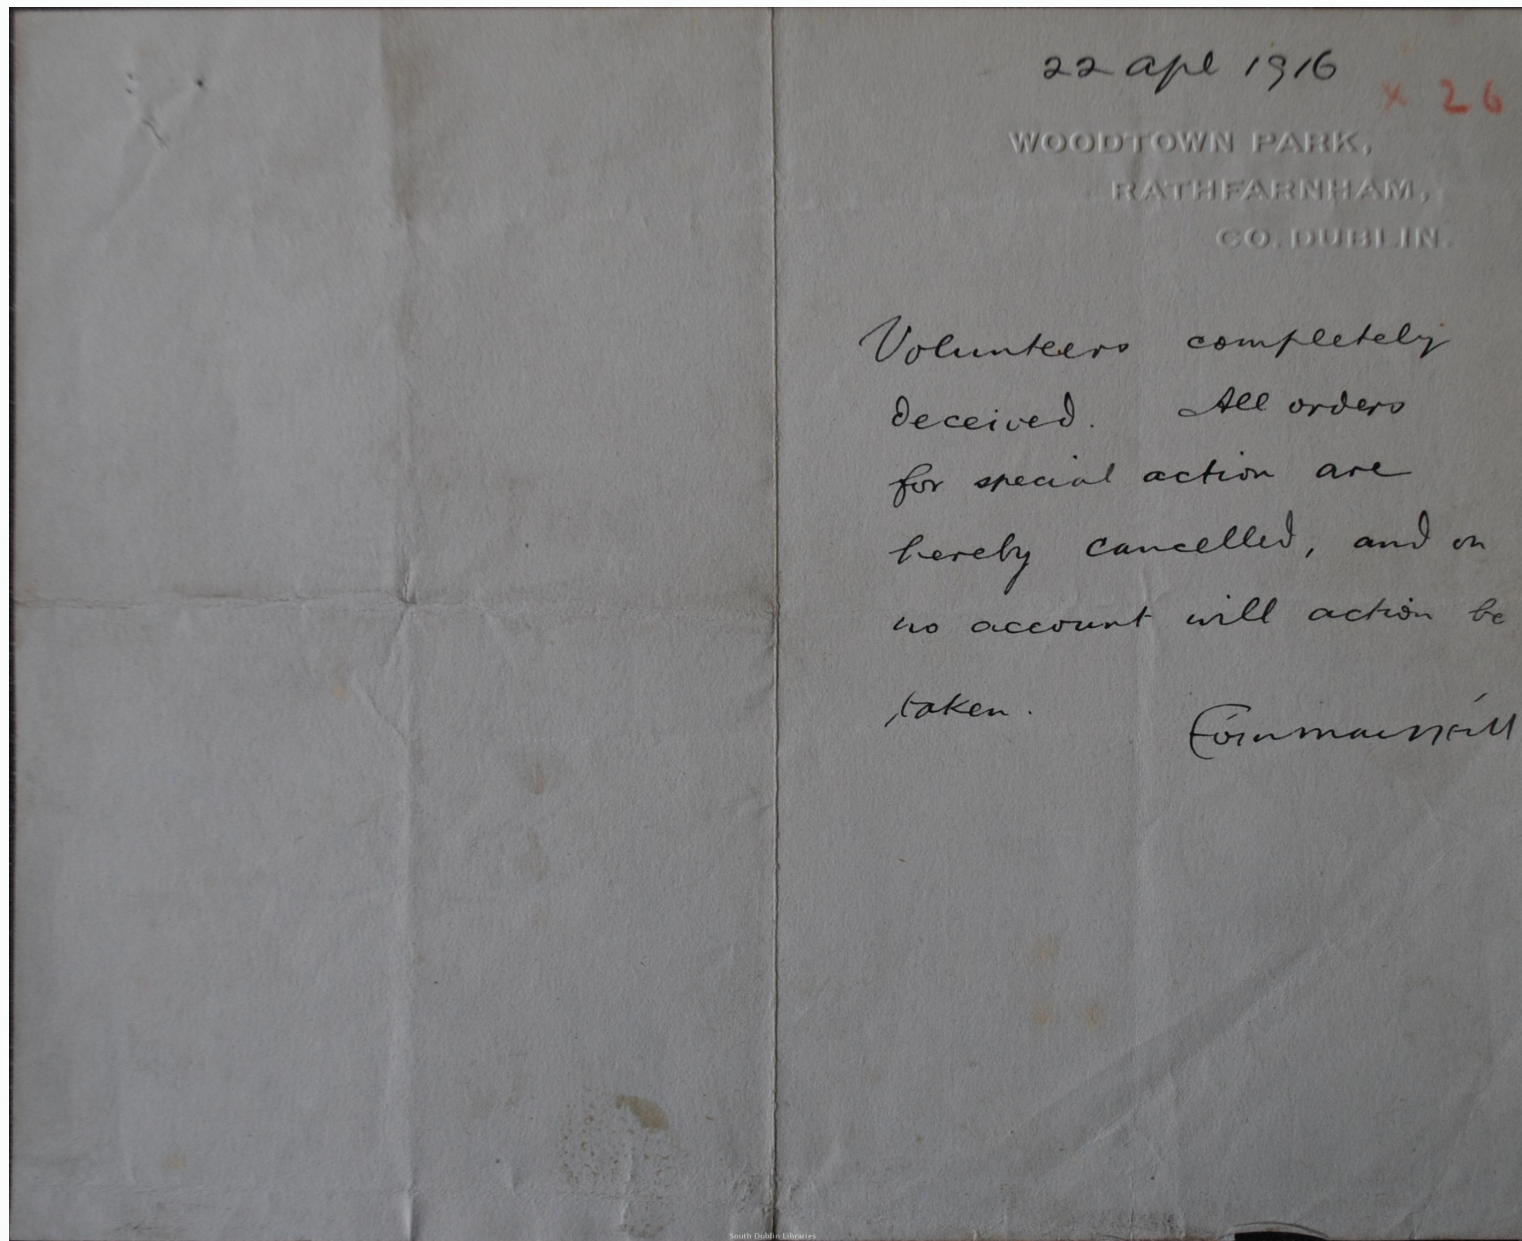 22 Apl 1916
x 26
WOODTOWN PARK,
RATHFARNHAM,
CO. DUBLIN.
Volunteers completely
deceived. All orders
for special action are
hereby cancelled, and on
no account will action be
taken.
Eóin MacNéill
South Dublin Libraries